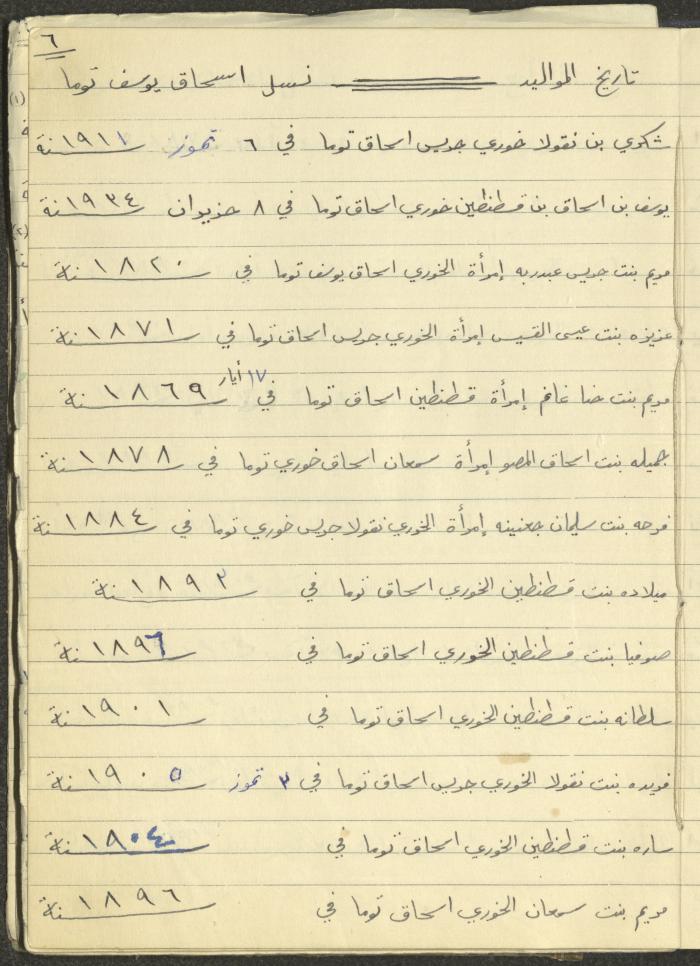 ٦
تاريخ المواليد نسل اسحاق يوسف توما
شكري بن نقولا خوري جريس اسحاق توما في ٦ تموز سنة ١٩١١
يوسف بن اسحاق بن قسطنطين خوري اسحاق توما في ٨ حزيران سنة ١٩٣٤
مريم بنت جريس عبدربه إمرأة الخوري اسحاق يوسف توما في سنة ١٨٢٠
عزيزه بنت عيسى القسيس إمرأة الخوري جريس اسحاق توما في سنة ١٨٧١
مريم بنت حنا غانم إمرأة قسطنطين اسحاق توما في ١٧ أيار سنة ١٨٦٩
جميله بنت اسحاق المصو إمرأة سمعان اسحاق خوري توما في سنة ١٨٧٨
فرحه بنت سليمان جعنينه إمرأة الخوري نقولا جريس خوري توما في سنة ١٨٨٤
ميلاده بنت قسطنطين الخوري اسحاق توما في سنة ١٨٩٣
صوفيا بنت قسطنطين الخوري اسحاق توما في سنة ١٨٩٦
سلطانه بنت قسطنطين الخوري اسحاق توما في سنة ١٩٠١
فريده بنت نقولا الخوري جريس اسحاق توما في ٣ تموز سنة ١٩٠٥
ساره بنت قسطنطين الخوري اسحاق توما في سنة ١٩٠٤
مريم بنت سمعان الخوري اسحاق توما في سنة ١٨٩٦